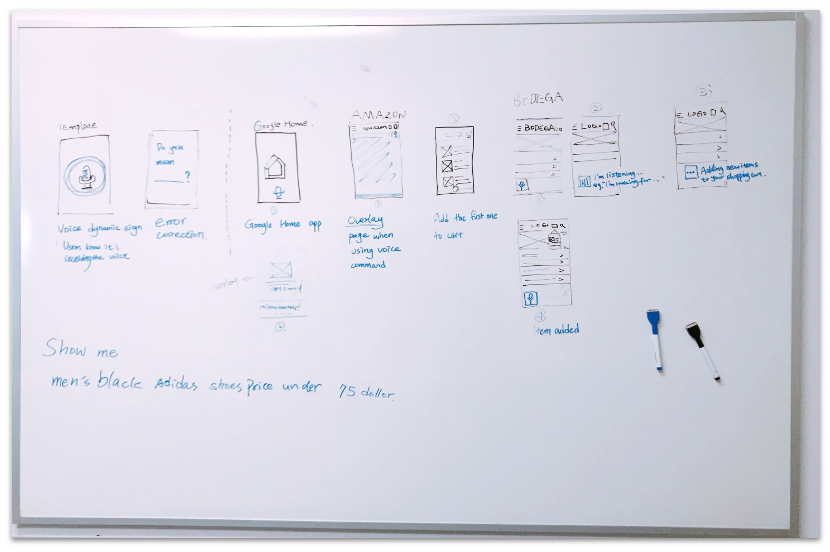 TEmplate
Do you
mean
?
Voice dynamic sign
Users know it's
receiving the voice
error
correction
Google Home.
①
Google Home app
②
AMAZON
amazon
①
Overlay
page when
using voice
command
②
Add the first one
to cart
BODEGA
≡ BODEGA
①
②
≡ LOGO
I'm listening...
eg. I'm looking for...
③
≡ LOGO
Adding new items
to your shopping cart.
≡ LOGO
④
Item added
Show me
men's black Adidas shoes price under 75 dollar.